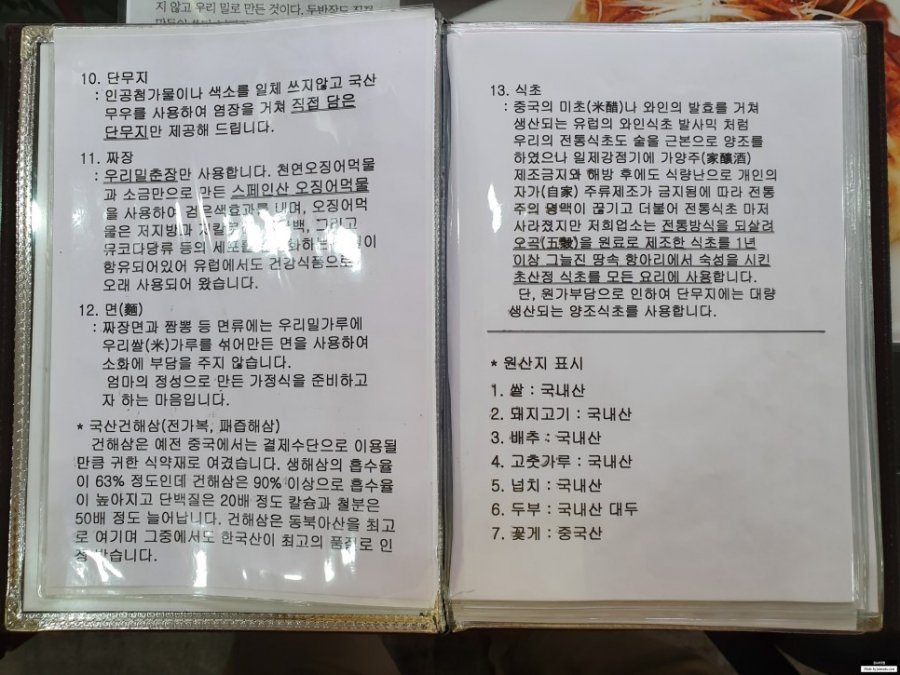 지 않고 우리 밀로 만든 것이다. 두반장도 직접
10. 단무지
: 인공첨가물이나 색소를 일체 쓰지않고 국산
무우를 사용하여 염장을 거쳐 직접 담은
단무지만 제공해 드립니다.
11. 짜장
: 우리밀춘장만 사용합니다. 천연오징어먹물
과 소금만으로 만든 스페인산 오징어먹물
을 사용하여 검은색효과를 내며, 오징어먹
물은 저지방과 그리고
뮤코다당류 등의
함유되어있어 유럽에서도 건강식품으로
오래 사용되어 왔습니다.
12. 면(麵)
: 짜장면과 짬뽕 등 면류에는 우리밀가루에
우리쌀(米)가루를 섞어만든 면을 사용하여
소화에 부담을 주지 않습니다.
엄마의 정성으로 만든 가정식을 준비하고
자 하는 마음입니다.
* 국산건해삼(전가복, 패즙해삼)
건해삼은 예전 중국에서는 결제수단으로 이용될
만큼 귀한 식약재로 여겼습니다. 생해삼의 흡수율
이 63% 정도인데 건해삼은 90% 이상으로 흡수율
이 높아지고 단백질은 20배 정도 칼슘과 철분은
50배 정도 늘어납니다. 건해삼은 동북아산을 최고
로 여기며 그중에서도 한국산이 최고의 품질로 인
정 받습니다.
13. 식초
: 중국의 미초(米醋)나 와인의 발효를 거쳐
생산되는 유럽의 와인식초 발사믹 처럼
우리의 전통식초도 술을 근본으로 양조를
하였으나 일제강점기에 가양주(家釀酒)
제조금지와 해방 후에도 식량난으로 개인의
자가(自家) 주류제조가 금지됨에 따라 전통
주의 명맥이 끊기고 더불어 전통식초 마저
사라졌지만 저희업소는 전통방식을 되살려
오곡(五穀)을 원료로 제조한 식초를 1년
이상 그늘진 땅속 항아리에서 숙성을 시킨
초산정 식초를 모든 요리에 사용합니다.
단, 원가부담으로 인하여 단무지에는 대량
생산되는 양조식초를 사용합니다.
* 원산지 표시
1. 쌀 : 국내산
2. 돼지고기 : 국내산
3. 배추 : 국내산
4. 고춧가루 : 국내산
5. 넙치 : 국내산
6. 두부 : 국내산 대두
7. 꽃게 : 중국산